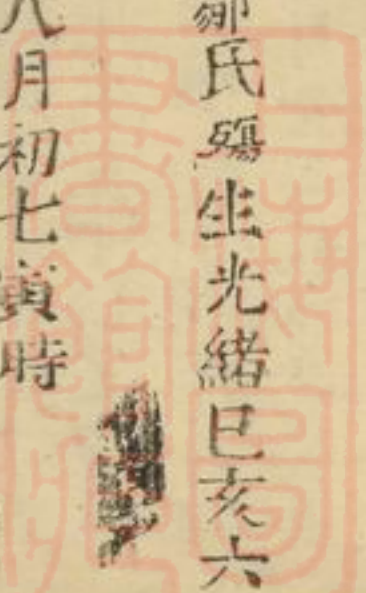 鄒氏殤生光緒巳亥六
八月初七寅時